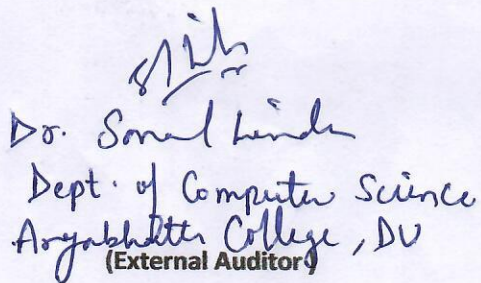 Dr. Sonal Linda
Dept. of Computer Science
Aryabhatta College, DU
(External Auditor)